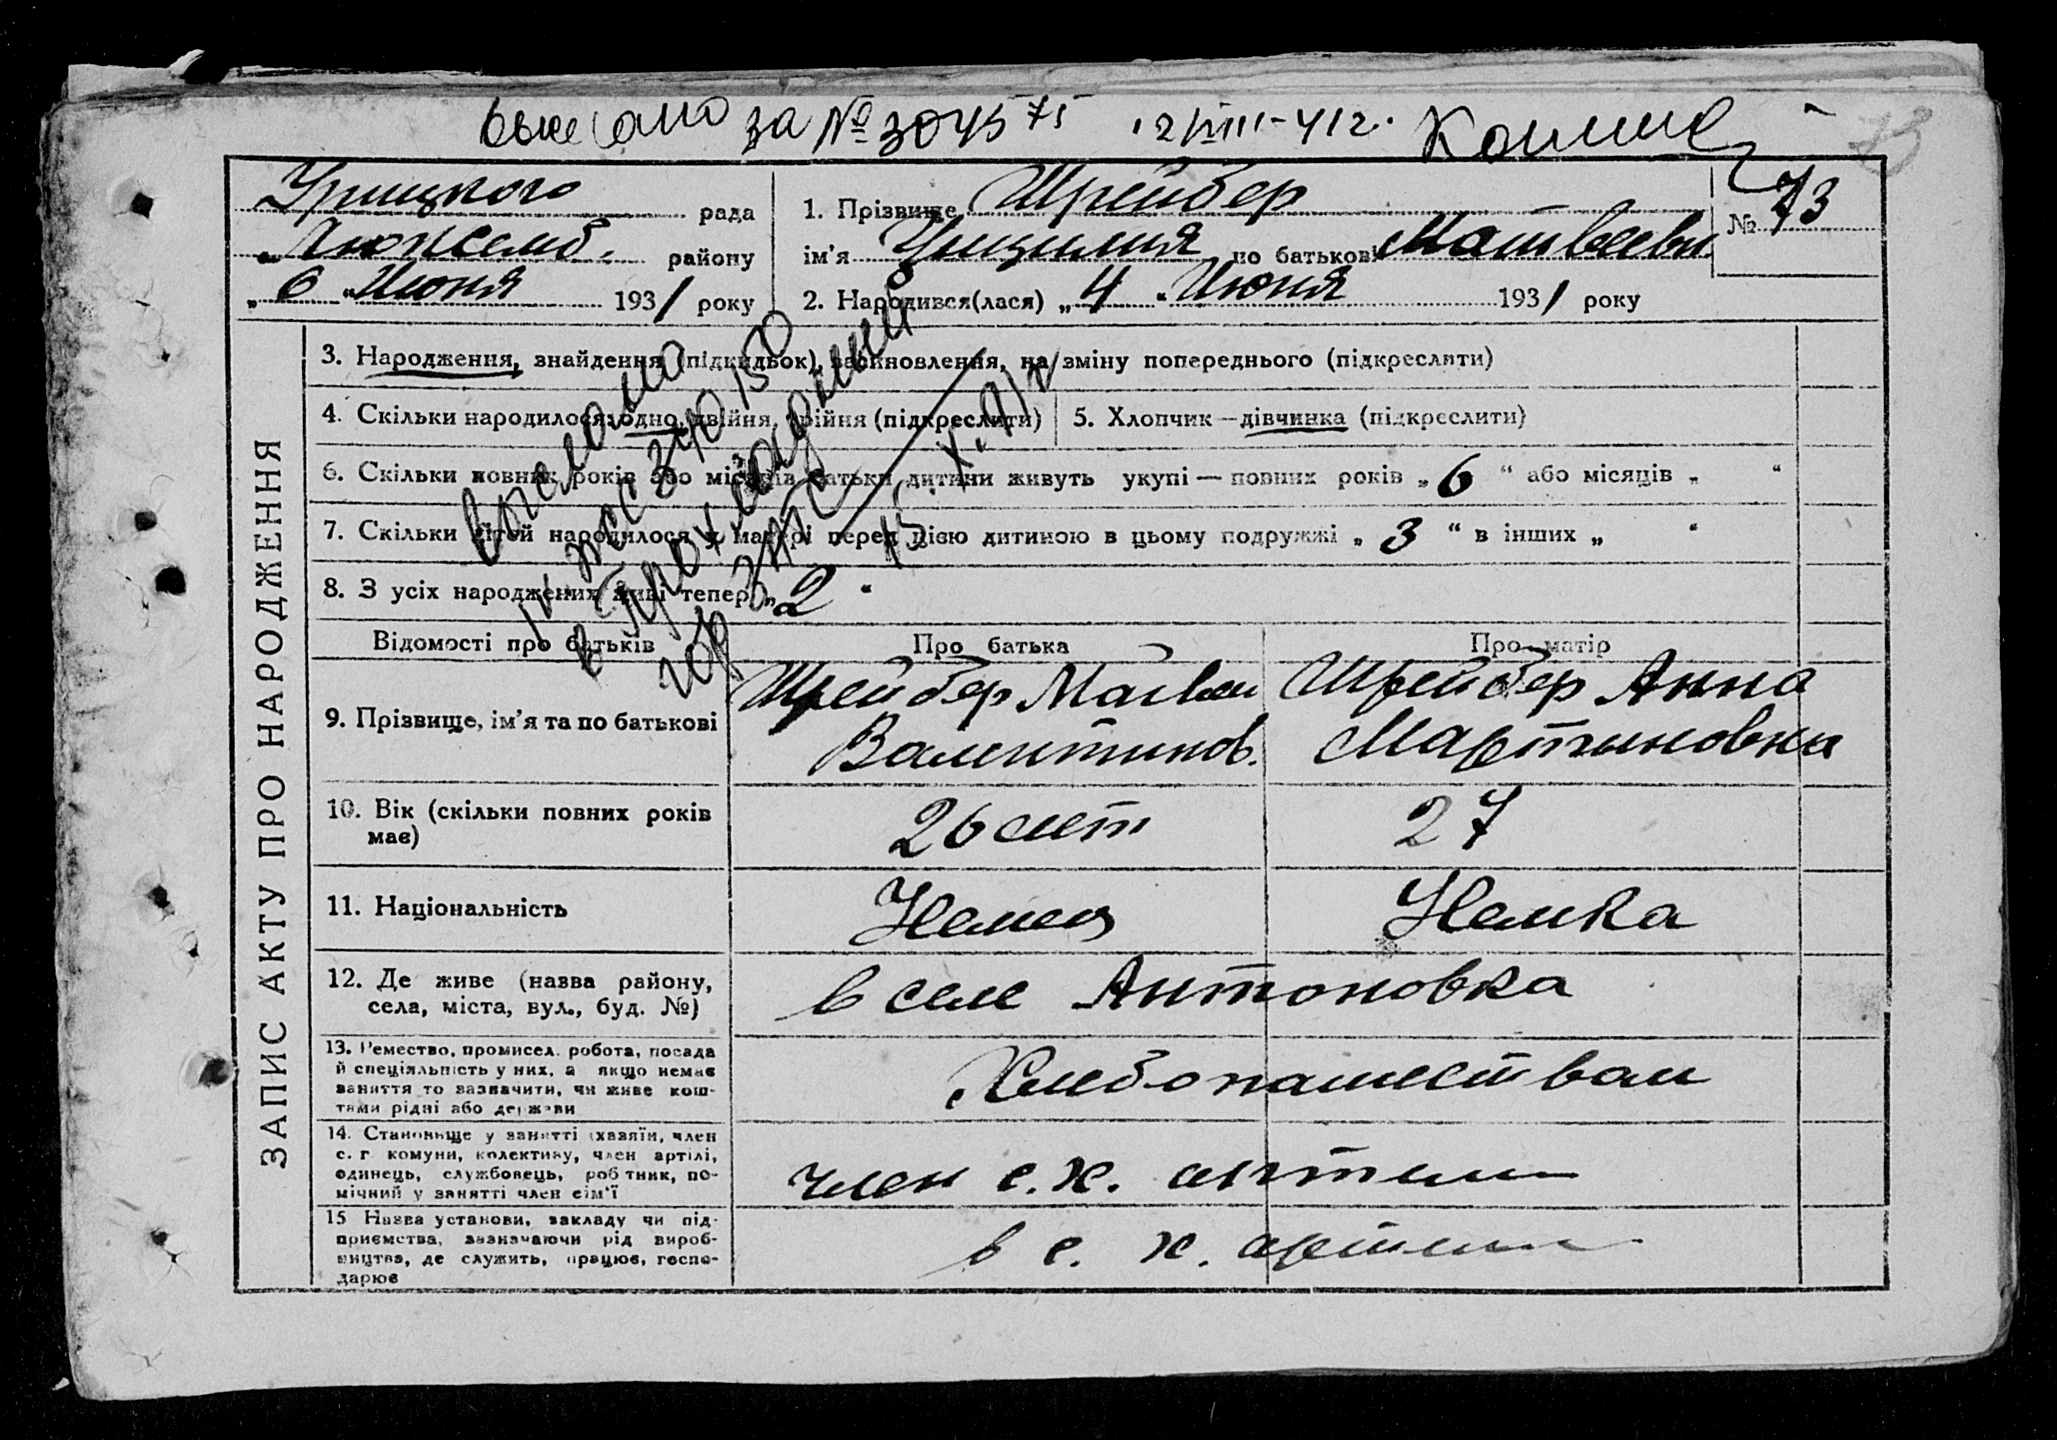 за № 3045 75 21/VIII-41г.
73
Урицкого рада
Люксемб. району
„ 6 " Июня 1931 року
1. Прізвище Шрейбер
№ 73
ім'я Цицилия по батькові Матвеевн
2. Народився(лася) „ 4 " Июня 1931 року
ЗАПИС АКТУ ПРО НАРОДЖЕННЯ
3. Народження, знайдення (підкидьок), засиновлення, на зміну попереднього (підкреслити)
4. Скільки народилося: одно, двійня, трійня (підкреслити) 5. Хлопчик—дівчинка (підкреслити)
6. Скільки повних років або місяців батьки дитини живуть укупі — повних років „ 6 " або місяців „ "
7. Скільки дітей народилося у матері перед цією дитиною в цьому подружжі „ 3 " в інших „ "
8. З усіх народжених живі тепер „ 2 "
Відомості про батьків Про батька Про матір
9. Прізвище, ім'я та по батькові
Шрейбер Матвеи
Валентинов.
Шрейбер Анна
Мартиновна
10. Вік (скільки повних років
має)
26 лет
27
11. Національність
Немец
Немка
12. Де живе (назва району,
села, міста, вул., буд. №)
в селе Антоновка
13. Ремество, промисел, робота, посада
й спеціяльність у них, а якщо немає
заняття то зазначити, чи живе кош-
тами рідні або держави
Хлебопашеством
14. Становище у занятті (хазяїн, член
с. г комуни, колективу, член артілі,
одинець, службовець, робітник, по-
мічний у занятті член сім'ї
член с. х. артели
15 Назва установи, закладу чи під-
приємства, зазначаючи рід вироб-
ництва, де служить, працює, госпо-
дарює
в с. х. артели